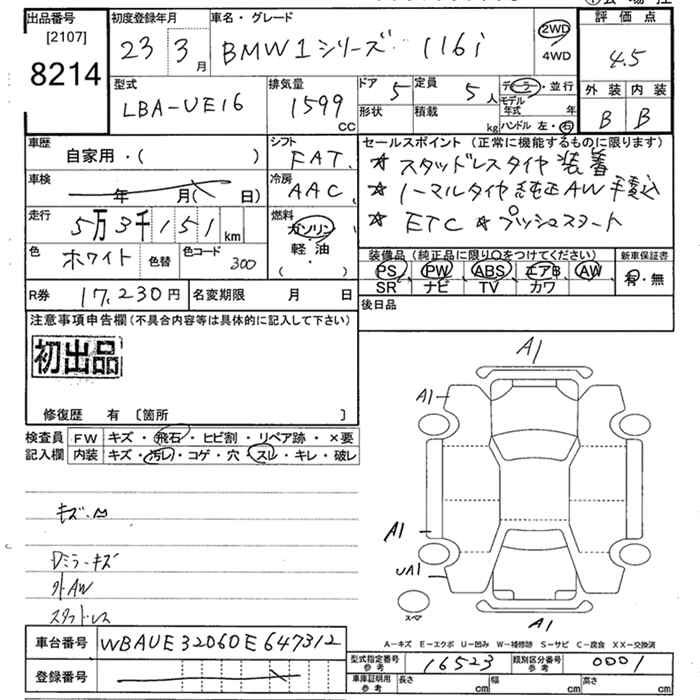 出品番号
[2107]
8214
初度登録年月
23 3月
車名・グレード
BMW1シリーズ 116i
2WD
4WD
評価点
4.5
型式
LBA-UE16
排気量
1599 CC
ドア 5
形状
定員 5人
積載 kg
ディーラー・並行
モデル年式 年
ハンドル 左・右
外装 内装
B B
車歴
自家用・( )
シフト
FAT
セールスポイント (正常に機能するものに限ります)
★ スタッドレスタイヤ 装着
★ ノーマルタイヤ 純正AW 手積込
★ ETC ★ プッシュスタート
車検
年 月( 日)
冷房
AAC
走行
5万3千151km
燃料
ガソリン
軽・油
・( )
色
ホワイト
色替
色コード
300
装備品 (純正品に限り○をつけてください)
PS PW ABS エアB AW
SR ナビ TV カワ
新車保証書
有・無
R券 17,230円
名変期限 月 日
後日品
注意事項申告欄(不具合内容等は具体的に記入して下さい)
初出品
修復歴 有 〔箇所 〕
検査員
記入欄
FW キズ・飛石・ヒビ割・リペア跡・×要
内装 キズ・汚れ・コゲ・穴・スレ・キレ・破レ
A1
A1
A1
UA1
スペア
A1
キズ.凹
Dミラーキズ
外AW
スタッドレス
A-キズ E-エクボ U-凹み W-補修跡 S-サビ C-腐食 XX-交換済
車台番号 WBAUE32060E647312
型式指定番号参考 16523
類別区分番号参考 0001
登録番号
車庫証明用参考 長さ cm 幅 cm 高さ cm